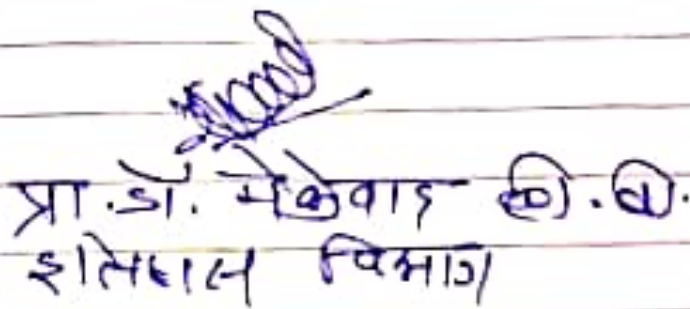 प्रा.डॉ. मेकेवाड व्ही.बी.
इतिहास विभाग